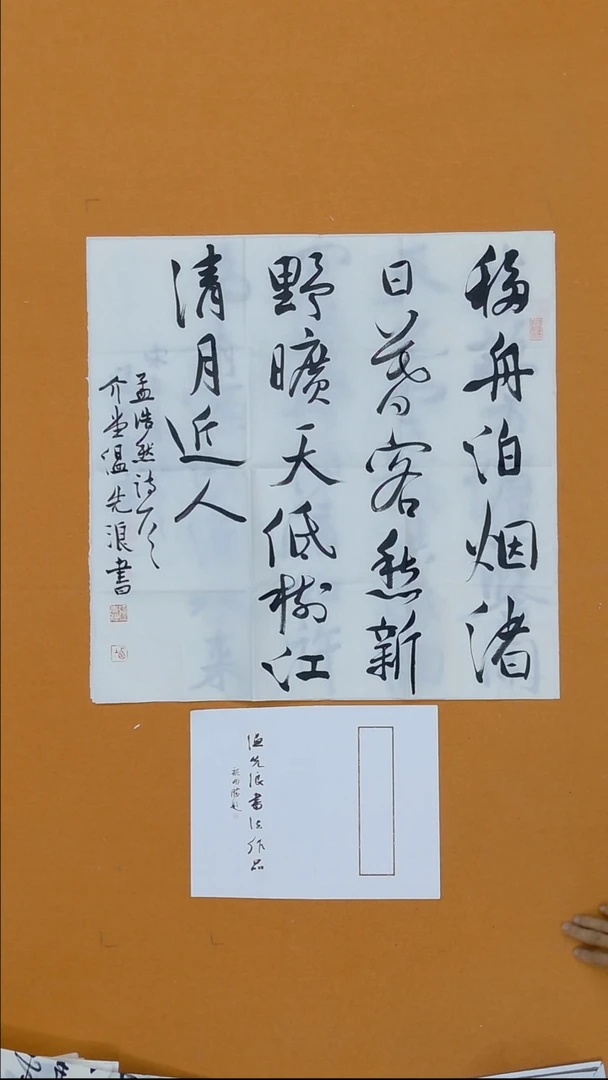 移舟泊烟渚
日暮客愁新
野曠天低樹江
清月近人
孟浩然诗
介堂温先浪書
温先浪書法作品